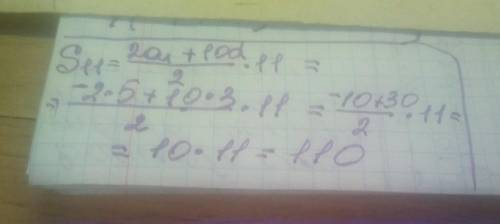 S₁₁ = (2a₁ + 10d)/2 · 11 =
= (-2·5 + 10·3)/2 · 11 = (-10+30)/2 · 11 =
= 10 · 11 = 110